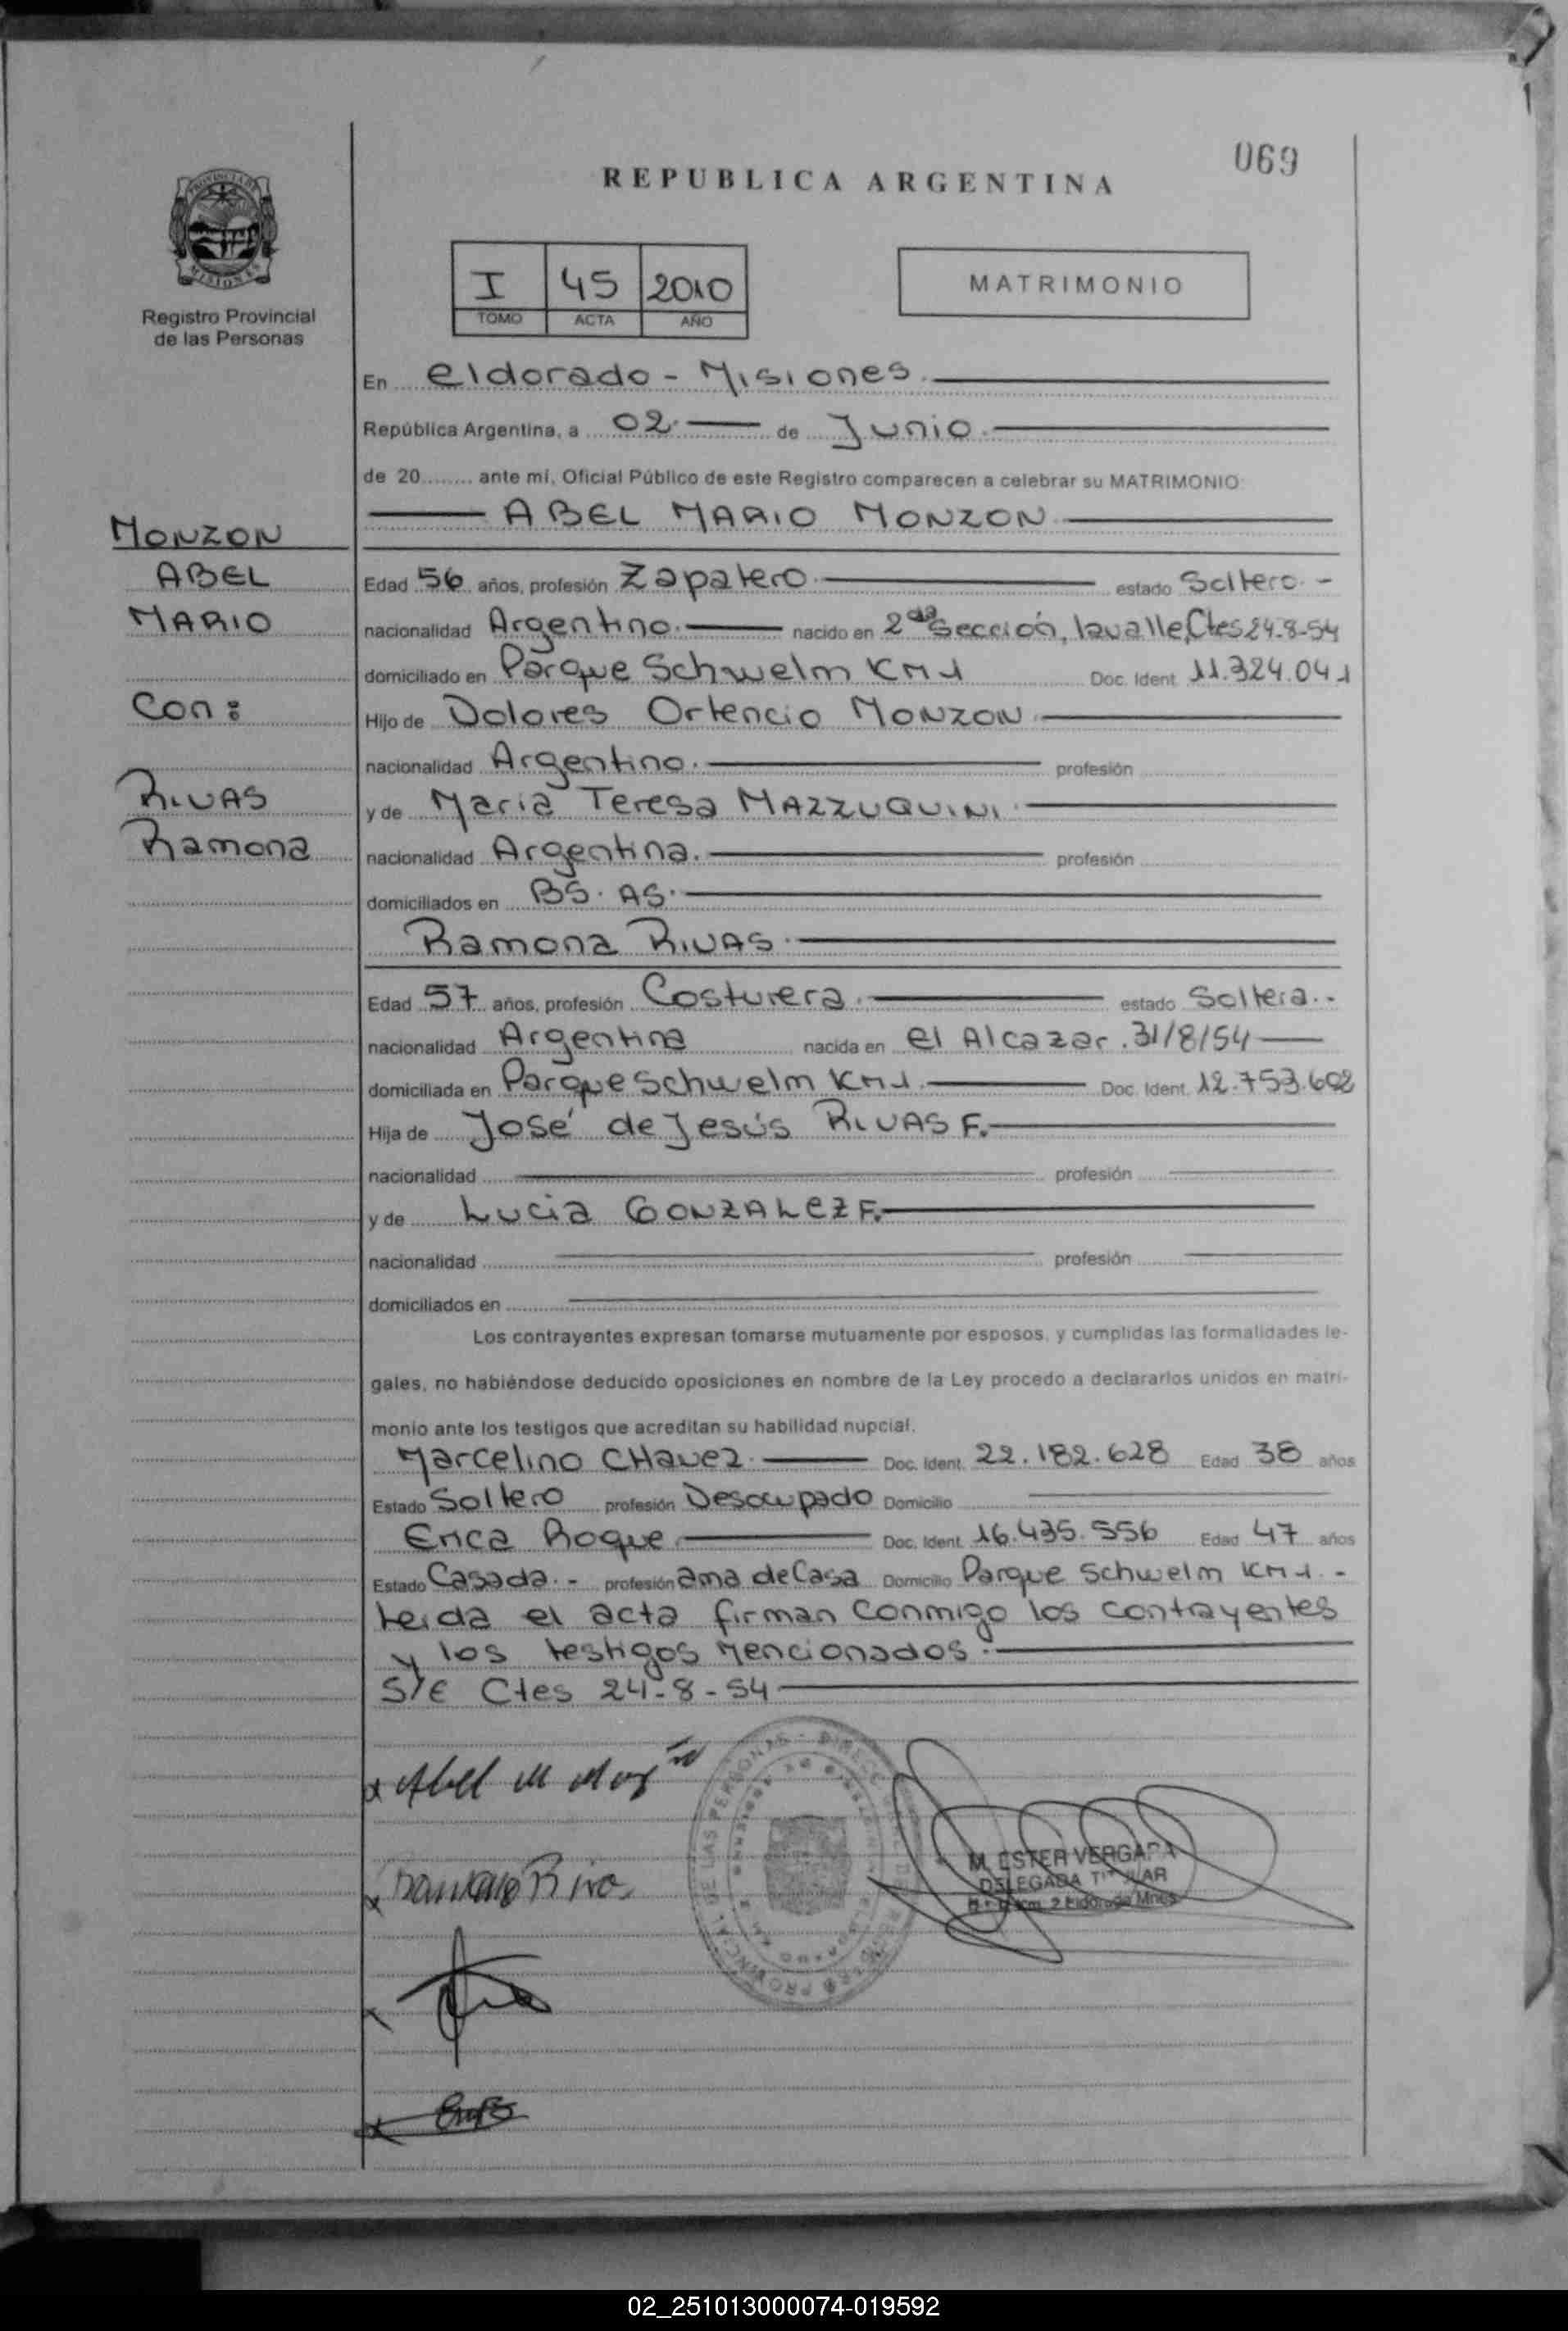 069
REPUBLICA ARGENTINA
PROVINCIA DE
MISIONES
Registro Provincial
de las Personas
I 45 2010
TOMO ACTA AÑO
MATRIMONIO
En eldorado - Misiones.
República Argentina, a 02 de Junio.
de 20........ ante mí, Oficial Público de este Registro comparecen a celebrar su MATRIMONIO:
ABEL MARIO MONZON
MONZON
ABEL
MARIO
Con:
RIVAS
Ramona
Edad 56 años, profesión Zapatero. estado Soltero. -
nacionalidad Argentino. nacido en 2da sección, lavalle, Ctes 24-8-54
domiciliado en Parque Schwelm KM 1 Doc. Ident. 11.324.041
Hijo de Dolores Ortencio MONZON
nacionalidad Argentino. profesión
y de Maria Teresa MAZZUQUINI.
nacionalidad Argentina. profesión
domiciliados en BS. AS.
Ramona RIVAS.
Edad 57 años, profesión Costurera. estado Soltera. -
nacionalidad Argentina nacida en el Alcazar. 31/8/54
domiciliada en Parque Schwelm KM 1. Doc. Ident. 12.753.602
Hija de José de Jesús RIVAS F.
nacionalidad profesión
y de Lucia GONZALEZ F.
nacionalidad profesión
domiciliados en
Los contrayentes expresan tomarse mutuamente por esposos, y cumplidas las formalidades le-
gales, no habiéndose deducido oposiciones en nombre de la Ley procedo a declararlos unidos en matri-
monio ante los testigos que acreditan su habilidad nupcial.
Marcelino CHavez. Doc. Ident. 22.182.628 Edad 38 años
Estado Soltero profesión Desocupado Domicilio
Erica Roque Doc. Ident. 16.435.556 Edad 47 años
Estado Casada. - profesión ama de Casa Domicilio Parque Schwelm KM 1. -
Leida el acta firman conmigo los contrayentes
y los testigos mencionados.
S/E Ctes 24-8-54
x Abel M
x Rivas
M. ESTER VERGARA
DELEGADA TITULAR
Km. 2 Eldorado Mnes.
02_251013000074-019592